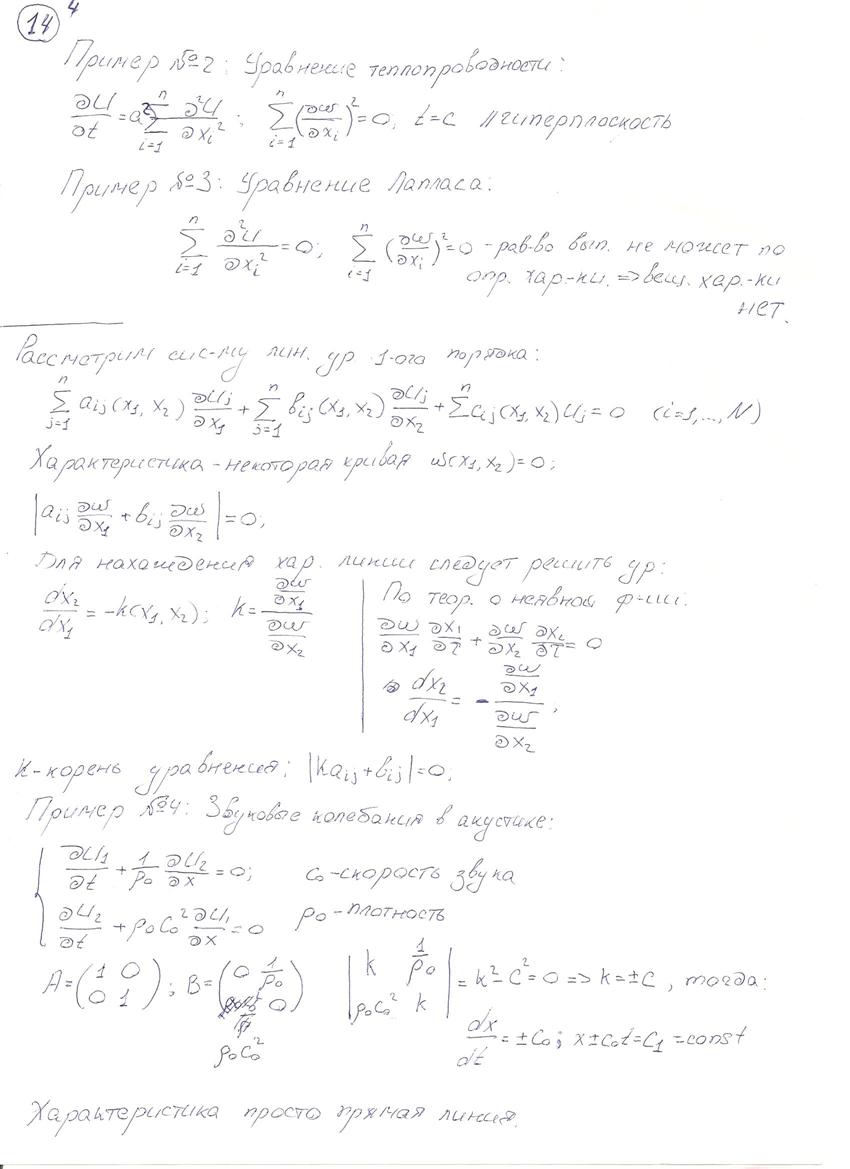 14 4
Пример №2: Уравнение теплопроводности:
∂U/∂t = a² Σ_{i=1}^{n} ∂²U/∂x_i² ; Σ_{i=1}^{n} (∂ω/∂x_i)² = 0; t = c // гиперплоскость
Пример №3: Уравнение Лапласа:
Σ_{i=1}^{n} ∂²U/∂x_i² = 0; Σ_{i=1}^{n} (∂ω/∂x_i)² = 0 - рав-во вып. не может по
опр. хар-ки. => вещ. хар.-ки
нет.
Рассмотрим сис-му лин. ур 1-ого порядка:
Σ_{j=1}^{n} a_ij(x₁, x₂) ∂U_j/∂x₁ + Σ_{j=1}^{n} b_ij(x₁, x₂) ∂U_j/∂x₂ + Σ^{n} c_ij(x₁, x₂) U_j = 0 (i=1,..., N)
Характеристика - некоторая кривая ω(x₁, x₂) = 0;
|a_ij ∂ω/∂x₁ + b_ij ∂ω/∂x₂| = 0;
Для нахождения хар. линии следует решить ур:
dx₂/dx₁ = -k(x₁, x₂); k = (∂ω/∂x₁)/(∂ω/∂x₂)
По теор. о неявной ф-ии:
∂ω/∂x₁ ∂x₁/∂τ + ∂ω/∂x₂ ∂x₂/∂τ = 0
dx₂/dx₁ = -(∂ω/∂x₁)/(∂ω/∂x₂),
k-корень уравнения; |ka_ij + b_ij| = 0;
Пример №4: Звуковые колебания в акустике:
{ ∂U₁/∂t + 1/ρ₀ ∂U₂/∂x = 0; c₀ - скорость звука
∂U₂/∂t + ρ₀c₀² ∂U₁/∂x = 0 ρ₀ - плотность
A = (1 0; 0 1); B = (0 1/ρ₀; ρ₀c₀² 0) |k 1/ρ₀; ρ₀c₀² k| = k² - c² = 0 => k = ±c, тогда:
dx/dt = ±c₀; x ± c₀t = C₁ = const
Характеристика просто прямая линия.